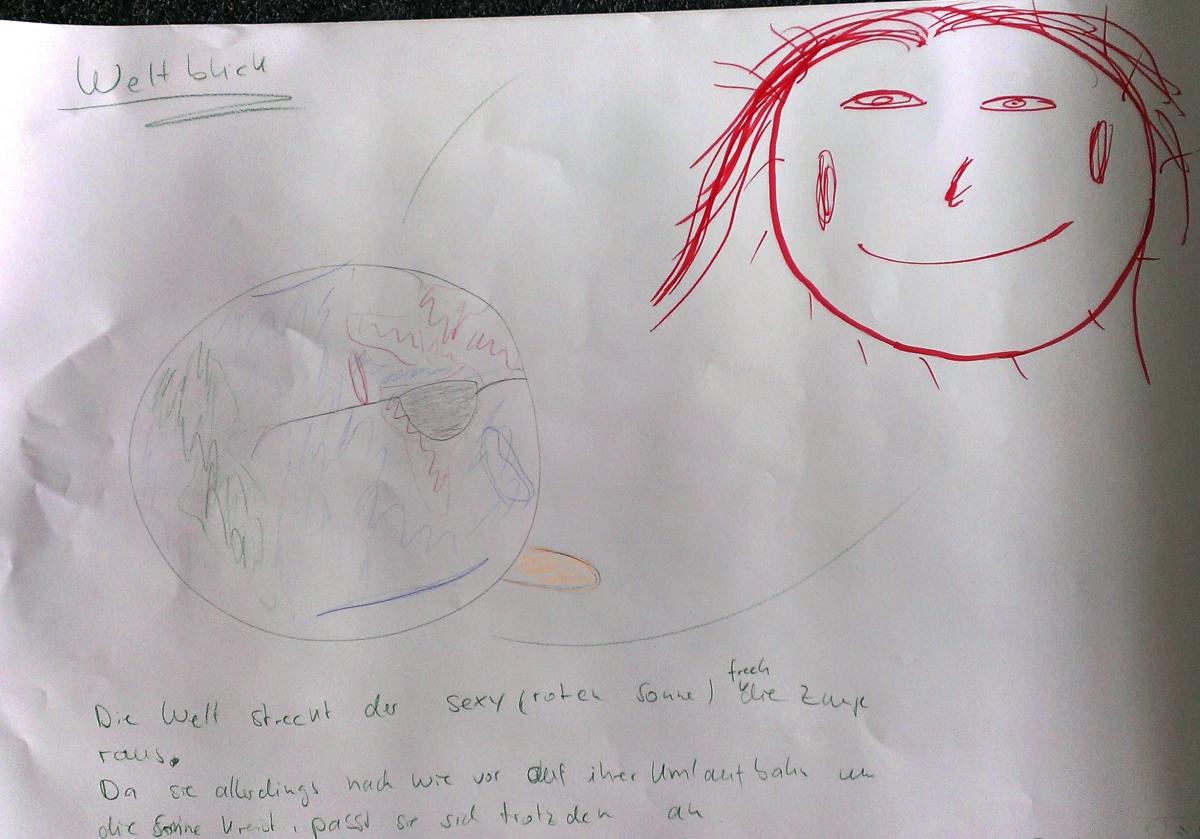 Weltblick
Die Welt streckt der sexy (roten Sonne) frech die Zunge
raus.
Da sie allerdings nach wie vor auf ihrer Umlaufbahn um
die Sonne kreist, passt sie sich trotzdem an.